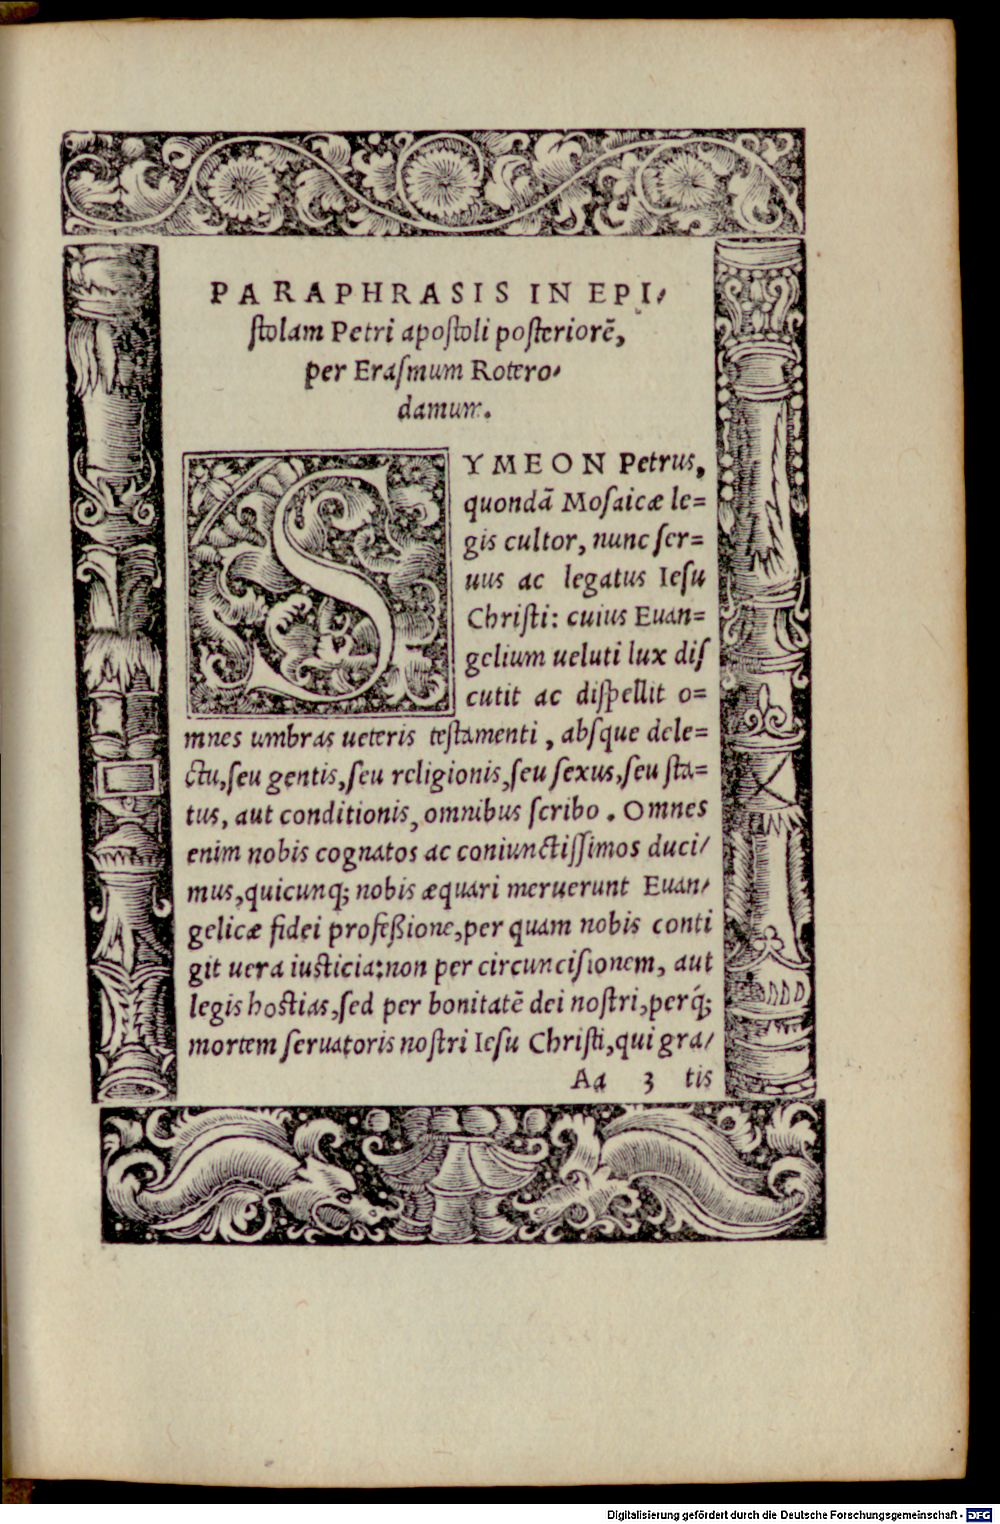 PARAPHRASIS IN EPI⸗
ſtolam Petri apoſtoli poſteriorē,
per Eraſmum Rotero⸗
damum.
SYMEON Petrus,
quondā Moſaicæ le=
gis cultor, nunc ſer=
uus ac legatus Ieſu
Chriſti: cuius Euan=
gelium ueluti lux diſ
cutit ac diſpellit o=
mnes umbras ueteris teſtamenti, abſque dele=
ctu, ſeu gentis, ſeu religionis, ſeu ſexus, ſeu ſta=
tus, aut conditionis, omnibus ſcribo. Omnes
enim nobis cognatos ac coniunctiſſimos duci⸗
mus, quicunq; nobis æquari meruerunt Euan⸗
gelicæ fidei profeßione, per quam nobis conti
git uera iusticia: non per circunciſionem, aut
legis hostias, ſed per bonitatē dei noſtri, perq́;
mortem ſeruatoris noſtri Ieſu Chriſti, qui gra⸗
Aa 3 tis
Digitalisierung gefördert durch die Deutsche Forschungsgemeinschaft - DFG